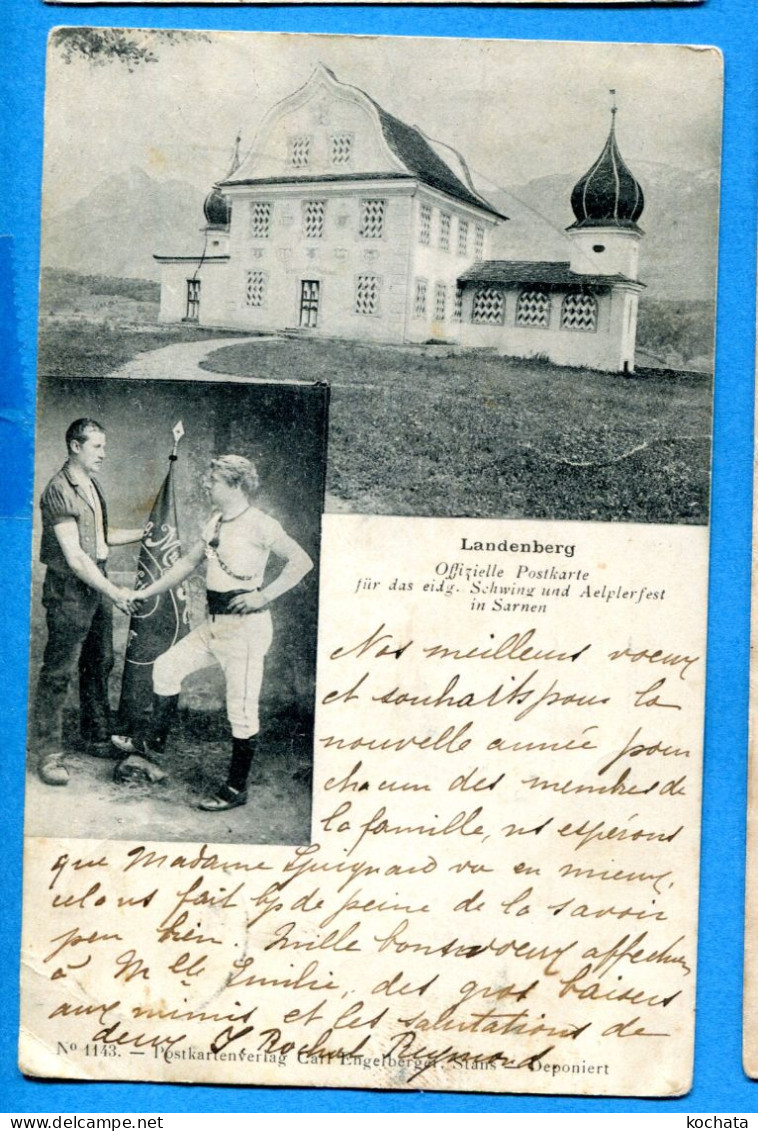 Landenberg
Offizielle Postkarte
für das eidg. Schwing und Aelplerfest
in Sarnen
Nos meilleurs voeux
et souhaits pour la
nouvelle année pour
chacun des membres de
la famille, ns espérons
que Madame Guignard va en mieux,
cela ns fait bp de peine de la savoir
peu bien. Mille bons voeux affectueux
à Mlle Emilie, des gros baisers
aux mimis et les salutations de
deux Rochat Reymond
No 1143. — Postkartenverlag Carl Engelberger, Stans — Deponiert
kochata